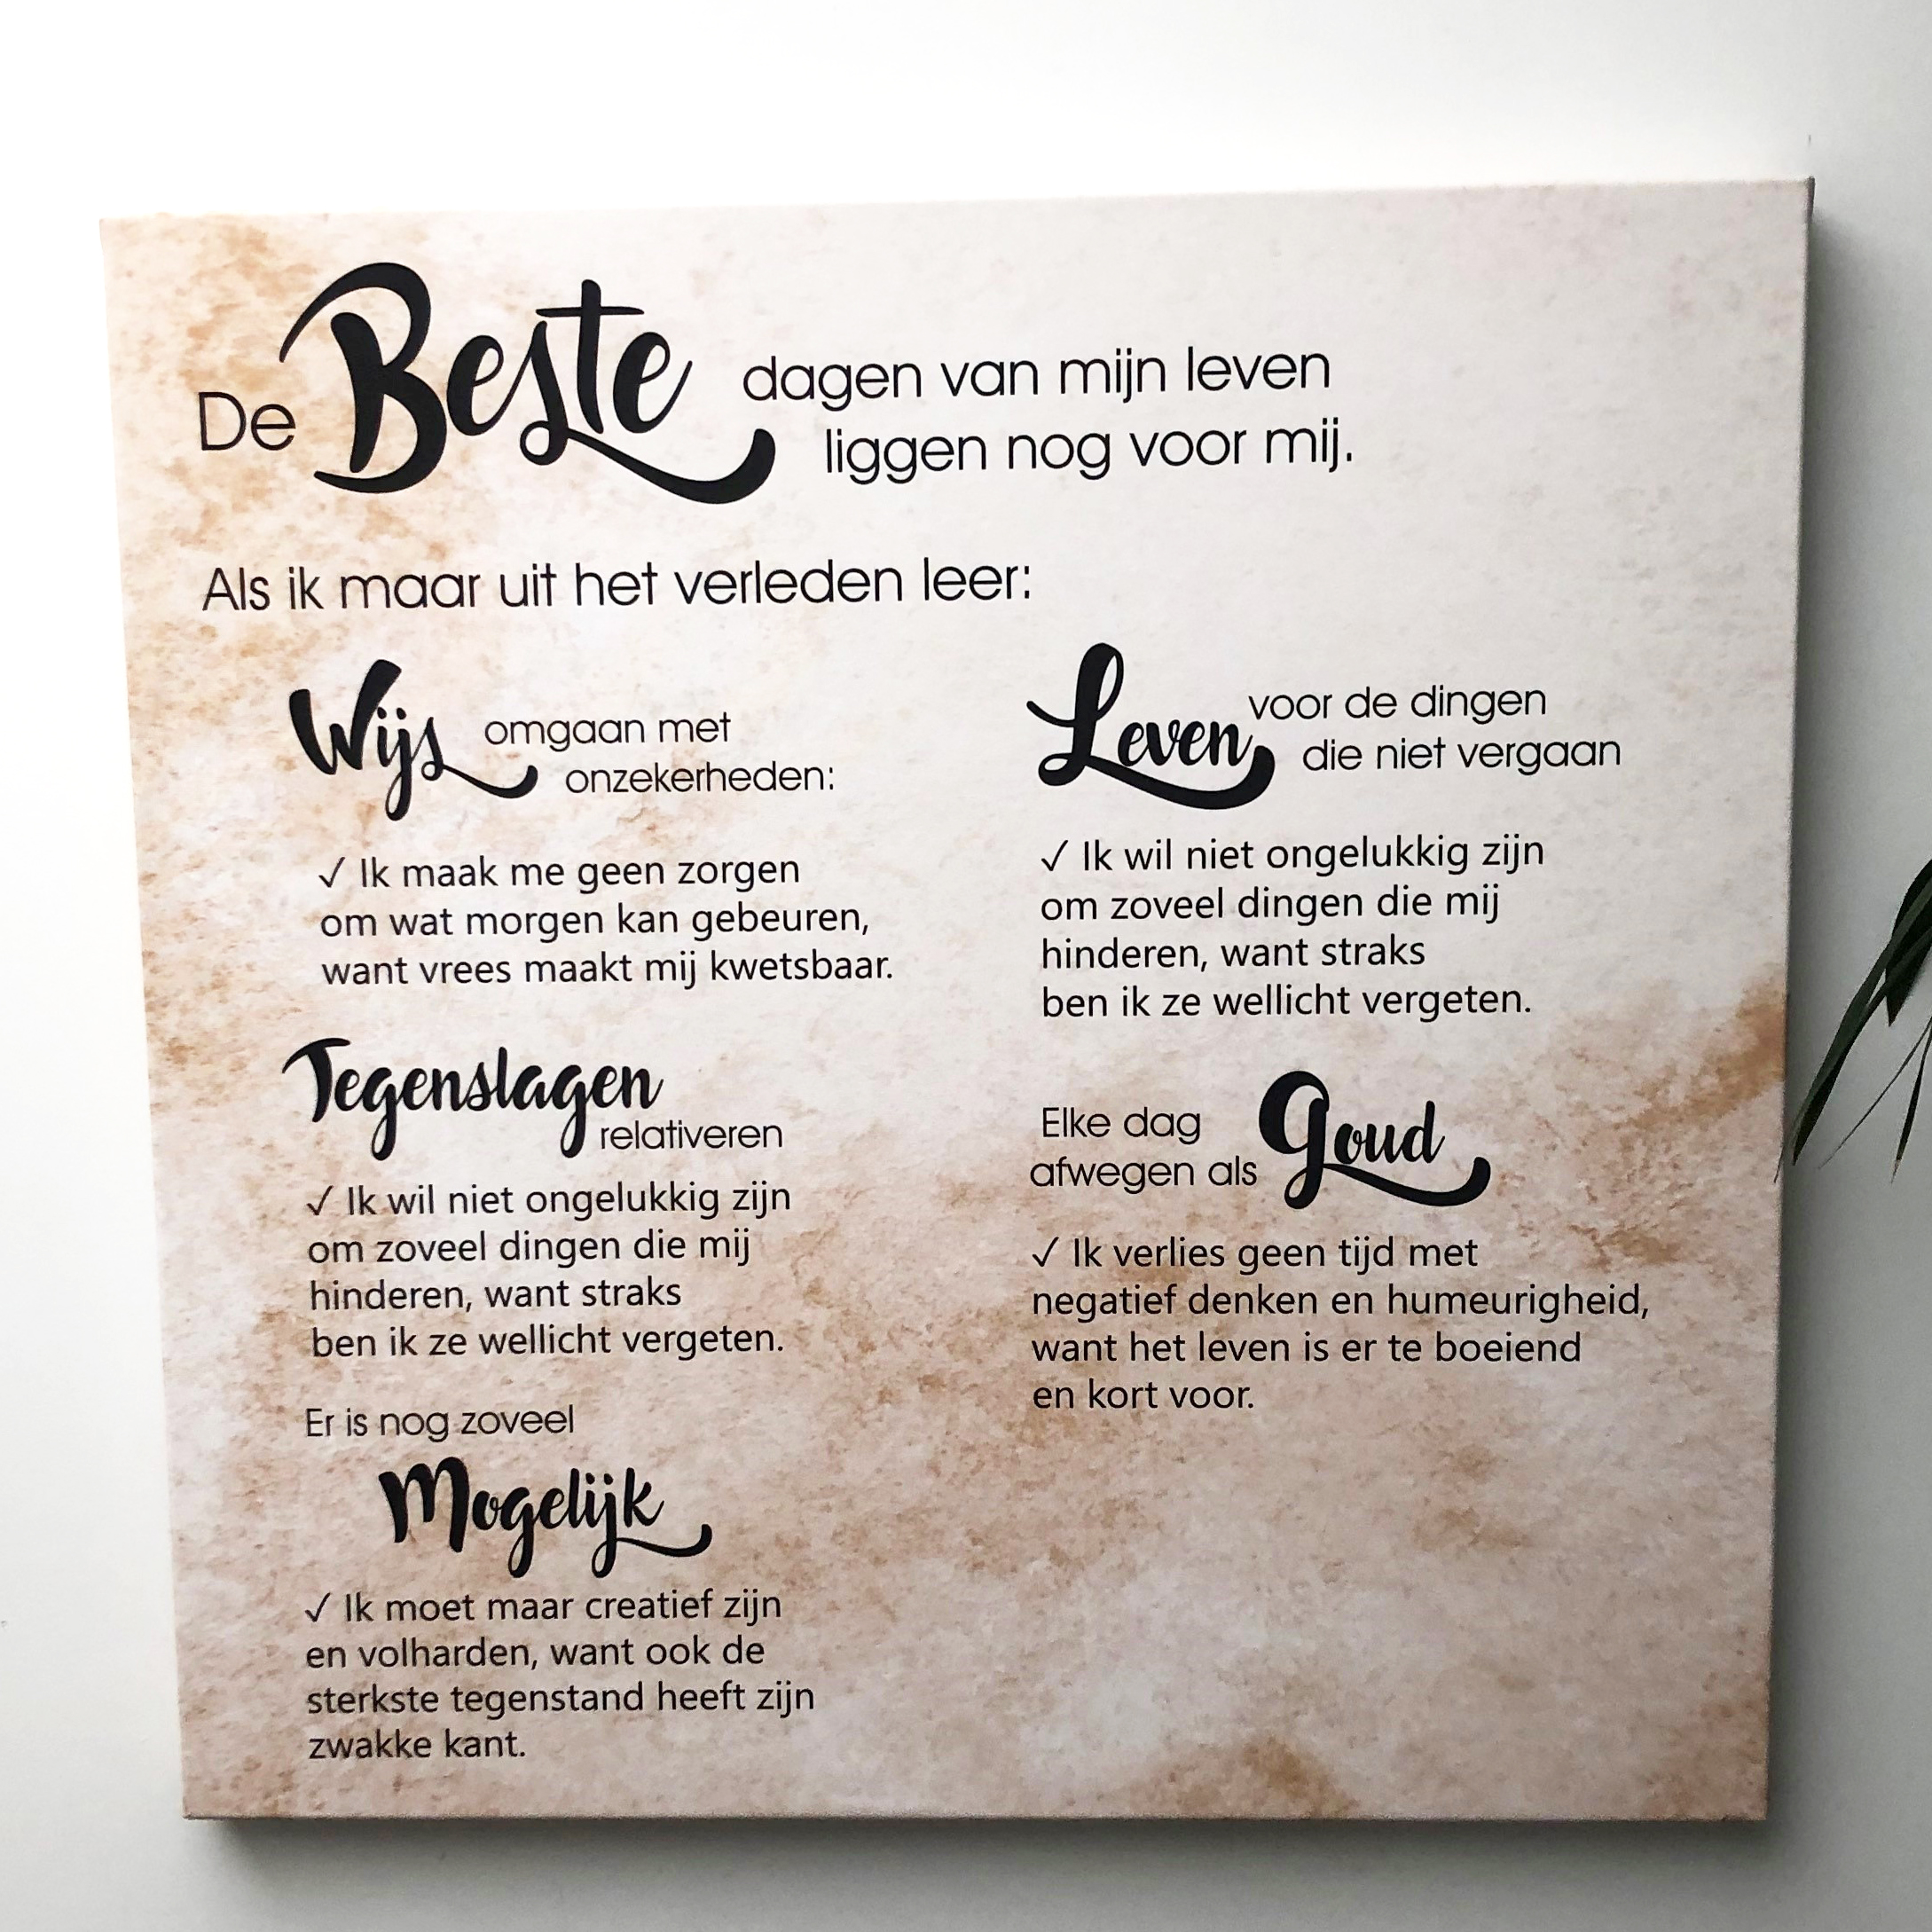 De Beste dagen van mijn leven
liggen nog voor mij.
Als ik maar uit het verleden leer:
Wijs omgaan met
onzekerheden:
✓ Ik maak me geen zorgen
om wat morgen kan gebeuren,
want vrees maakt mij kwetsbaar.
Tegenslagen
relativeren
✓ Ik wil niet ongelukkig zijn
om zoveel dingen die mij
hinderen, want straks
ben ik ze wellicht vergeten.
Er is nog zoveel
Mogelijk
✓ Ik moet maar creatief zijn
en volharden, want ook de
sterkste tegenstand heeft zijn
zwakke kant.
Leven voor de dingen
die niet vergaan
✓ Ik wil niet ongelukkig zijn
om zoveel dingen die mij
hinderen, want straks
ben ik ze wellicht vergeten.
Elke dag
afwegen als Goud
✓ Ik verlies geen tijd met
negatief denken en humeurigheid,
want het leven is er te boeiend
en kort voor.